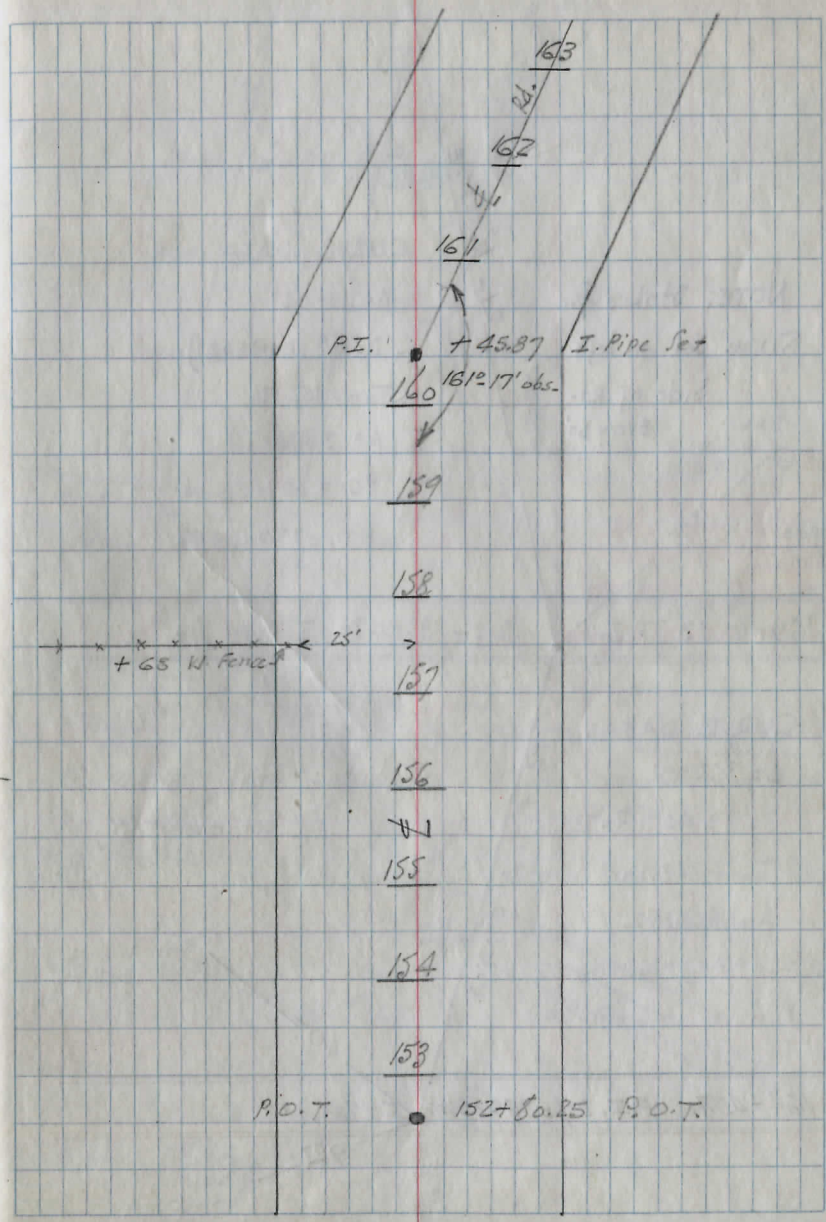 163
Rd.
162
℄
161
P.I. +45.87 I. Pipe Set
161°-17' obs.
160
159
158
25'
+ 65 W. Fence
157
156
℄
155
154
153
P.O.T. 152+80.25 P.O.T.